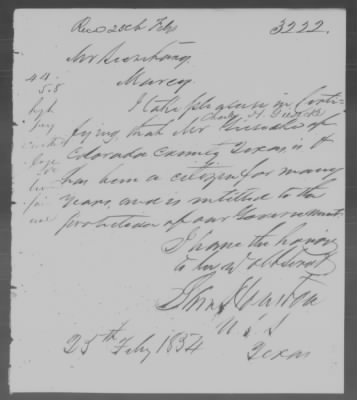 Recd 20th Feb
3222.
Mr Secretary
Marcy
I take pleasure in certi-
fying, that Mr
of
Colorado County Texas is &
has been a citizen for many
years, and is entitled to the
protection of our Government
I have the honor
to be yr obt Servt
Sam Houston
U. S. S
25th Feby 1854 Texas
44
5.8
high